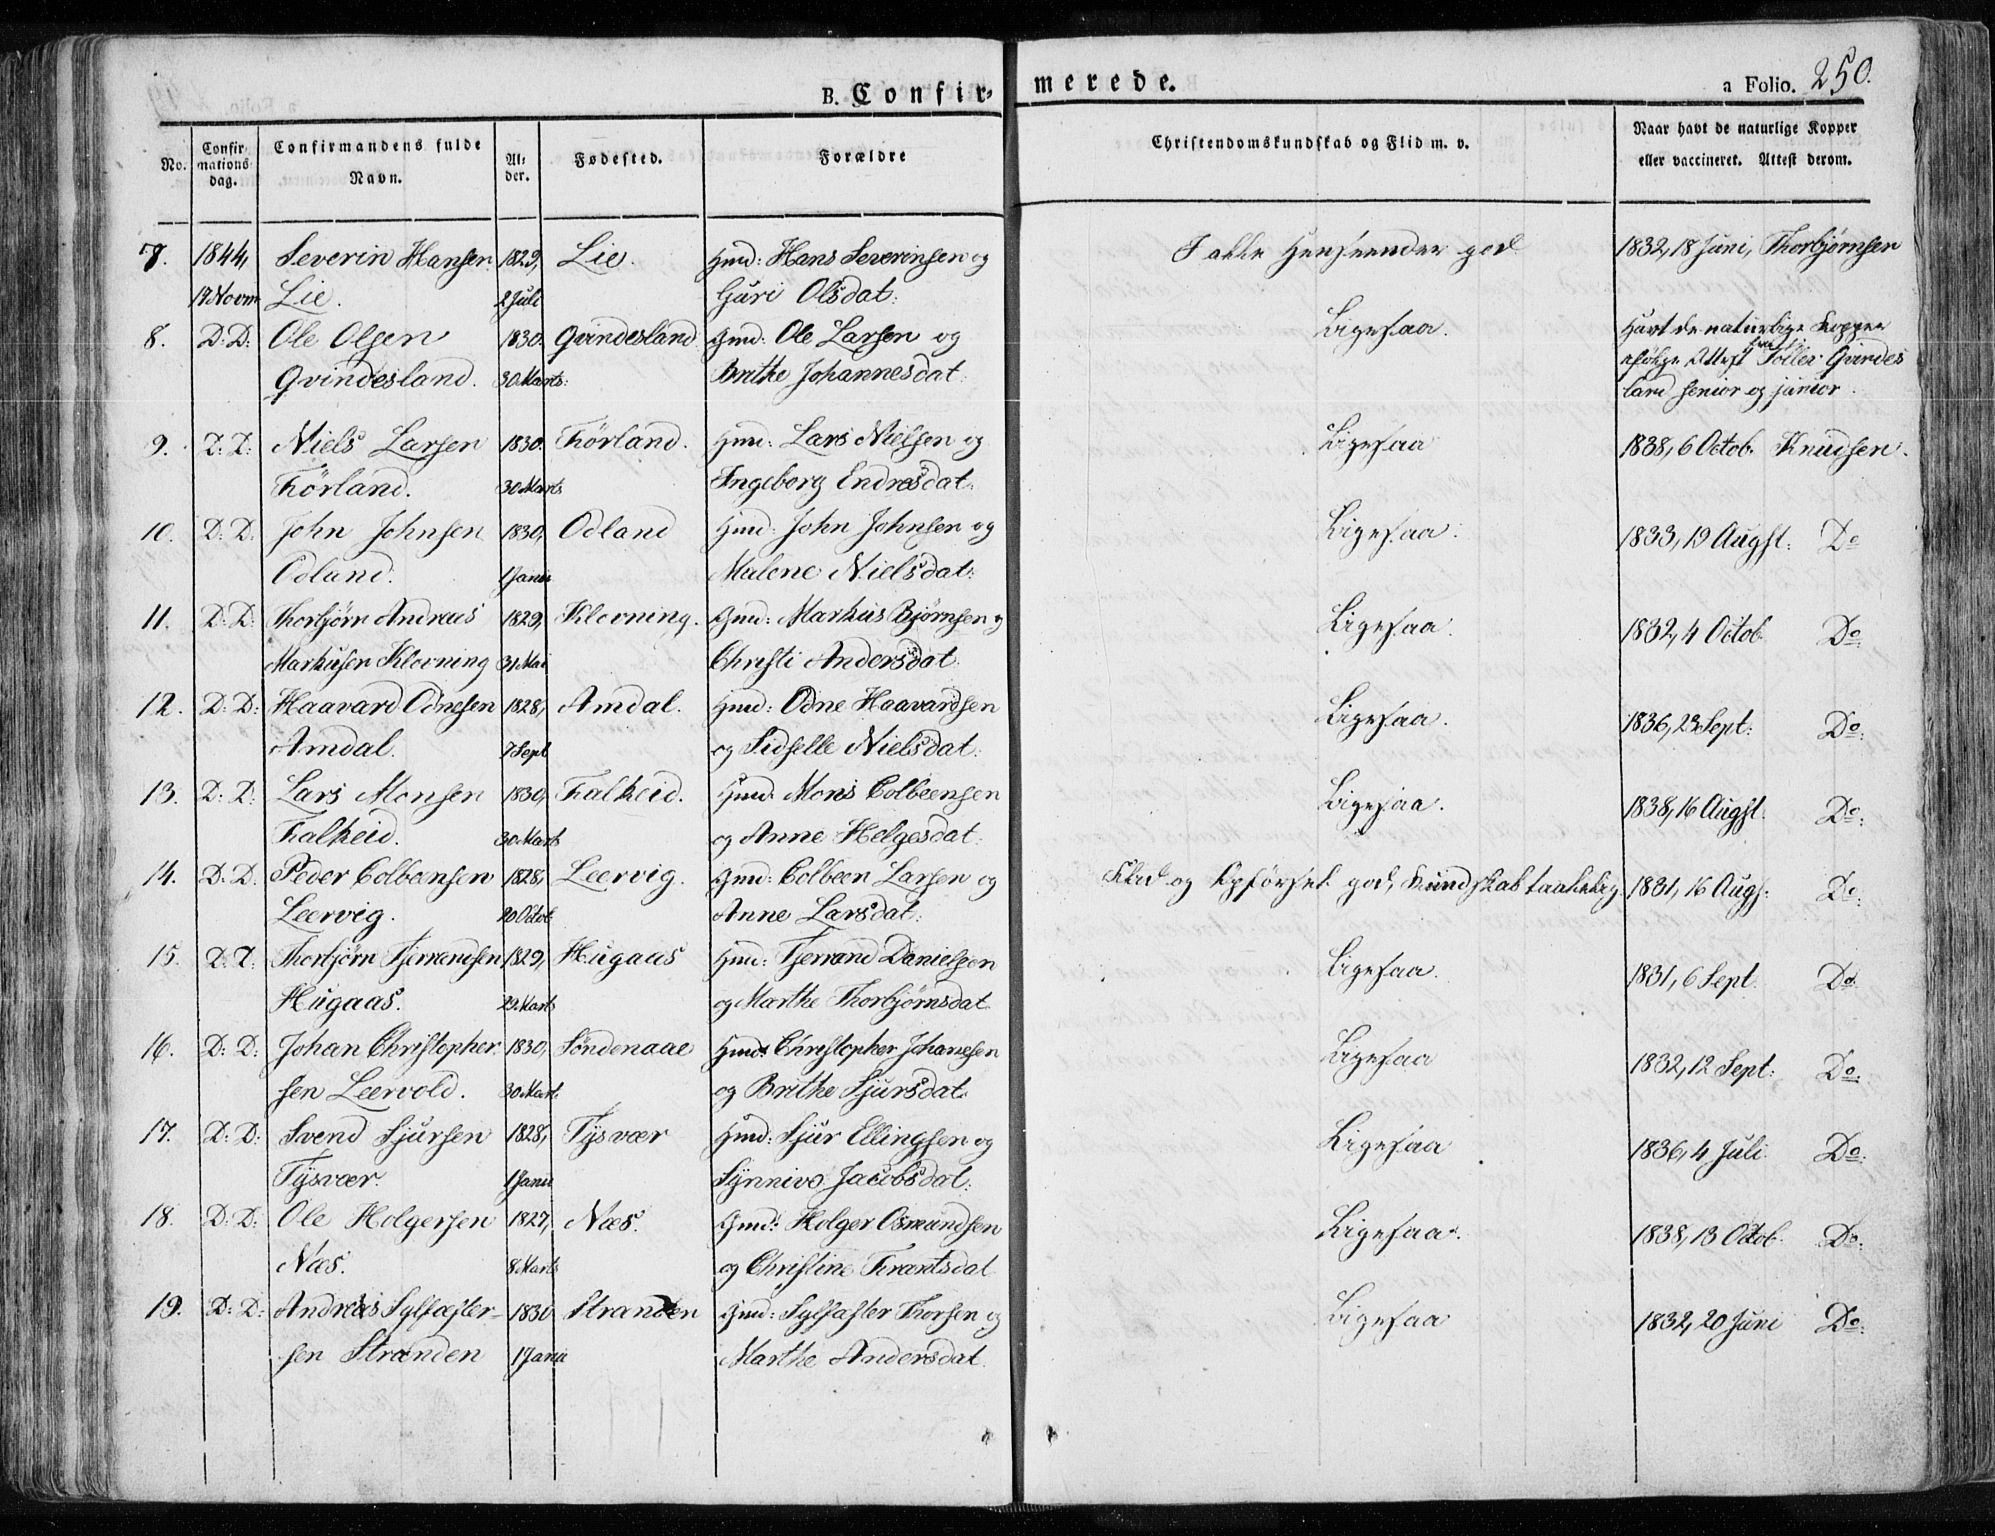 B. Confirmerede. a Folio. 250.
No. Confirmationsdag. Confirmandens fulde Navn. Alder. Fødested. Forældre Christendomskundskab og Flid m. v. Naar havt de naturlige Kopper eller vaccineret. Attest derom.
7. 1844, Severin Hansen 1829, Lie. Gmd: Hans Severinsen og I alle Henseender god 1832, 18 Juni, Thorbjørnsen
17 Novm Lie. 2 Juli Guri Olsdat:
8. D: D: Ole Olsen 1830. Qvindesland Gmd: Ole Larsen og Ligesaa. Havt de naturlige Kopper
Qvindesland. 30 Marts: Brithe Johannesdat: ifølge Attest fra Töller Qvindes
land senior og junior.
9. D: D: Niels Larsen 1830. Förland. Gmd: Lars Nielsen og Ligesaa 1838, 6 Octob. Knudsen.
Förland. 30 Marts Ingeborg Endresdat:
10. D: D: John Johnsen 1830, Odland Gmd: John Johnsen og Ligesaa. 1833, 19 Augst: Do
Odland. 1 Janu Malene Nielsdat:
11. D: D: Thorbjörn Andreas 1829, Klovning. Gmd: Markus Björnsen og Ligesaa. 1832, 4 Octob. Do:
Markusen Klovning 31 Mai Christi Andersdat:
12. D: D: Haavard Odnesen 1828, Amdal. Gmd: Odne Haavardsen Ligesaa. 1836, 23 Sept: Do:
Amdal. 7 Sept og Sidselle Nielsdat:
13. D: D: Lars Monsen 1830, Falkeid. Gmd: Mons Colbeensen Ligesaa. 1838, 16 Augst. Do:
Falkeid. 30 Marts og Anne Helgesdat.
14. D: D. Peder Colbeensen 1828, Leervig. Gmd: Colbeen Larsen og Flid og Opförsel god, Kundskab taalelig. 1831, 16 Augs: Do:
Leervig. 20 Octob Anne Larsdat:
15. D: D. Thorbjörn Tjerrandsen 1829, Hugaas Gmd: Tjerrand Danielsen Ligesaa. 1831, 6 Sept. Do.
Hugaas. 29 Marts og Marthe Thorbjörnsdat
16. D: D: Johan Christopher 1830, Söndenaae Gmd: Christopher Johanesen Ligesaa 1832, 12 Sept: Do.
sen Leervold. 30 Mart. og Brithe Sjursdat:
17. D: D: Svend Sjursen 1828, Tysvær Gmd: Sjur Ellingsen og Ligesaa 1836, 4 Juli. Do:
Tysvær. 1 Janu Synniva Jacobsdat:
18. D: D: Ole Holgersen 1827, Næs. Gmd: Holger Osmundsen Ligesaa. 1838, 13 Octob. Do:
Næs. 8 Marts og Christine Frantsdat
19. D: D: Andreas Sylfæster- 1830 Stranden Gmd: Sylfæster Thorsen og Ligesaa 1832, 20 Juni Do:
sen Stranden 1 Janu Marthe Andersdat.